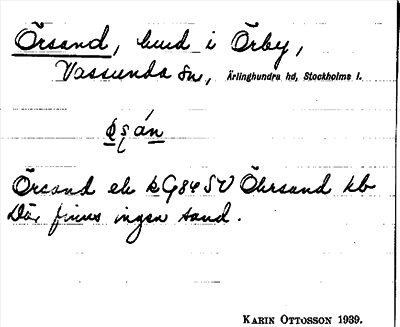 Örsand, hmd i Örby,
Vassunda sn, Ärlinghundra hd, Stockholms l.
Örsand ek kG84SV Öhrsand kb
Där finns ingen sand.
KARIN OTTOSSON 1939.